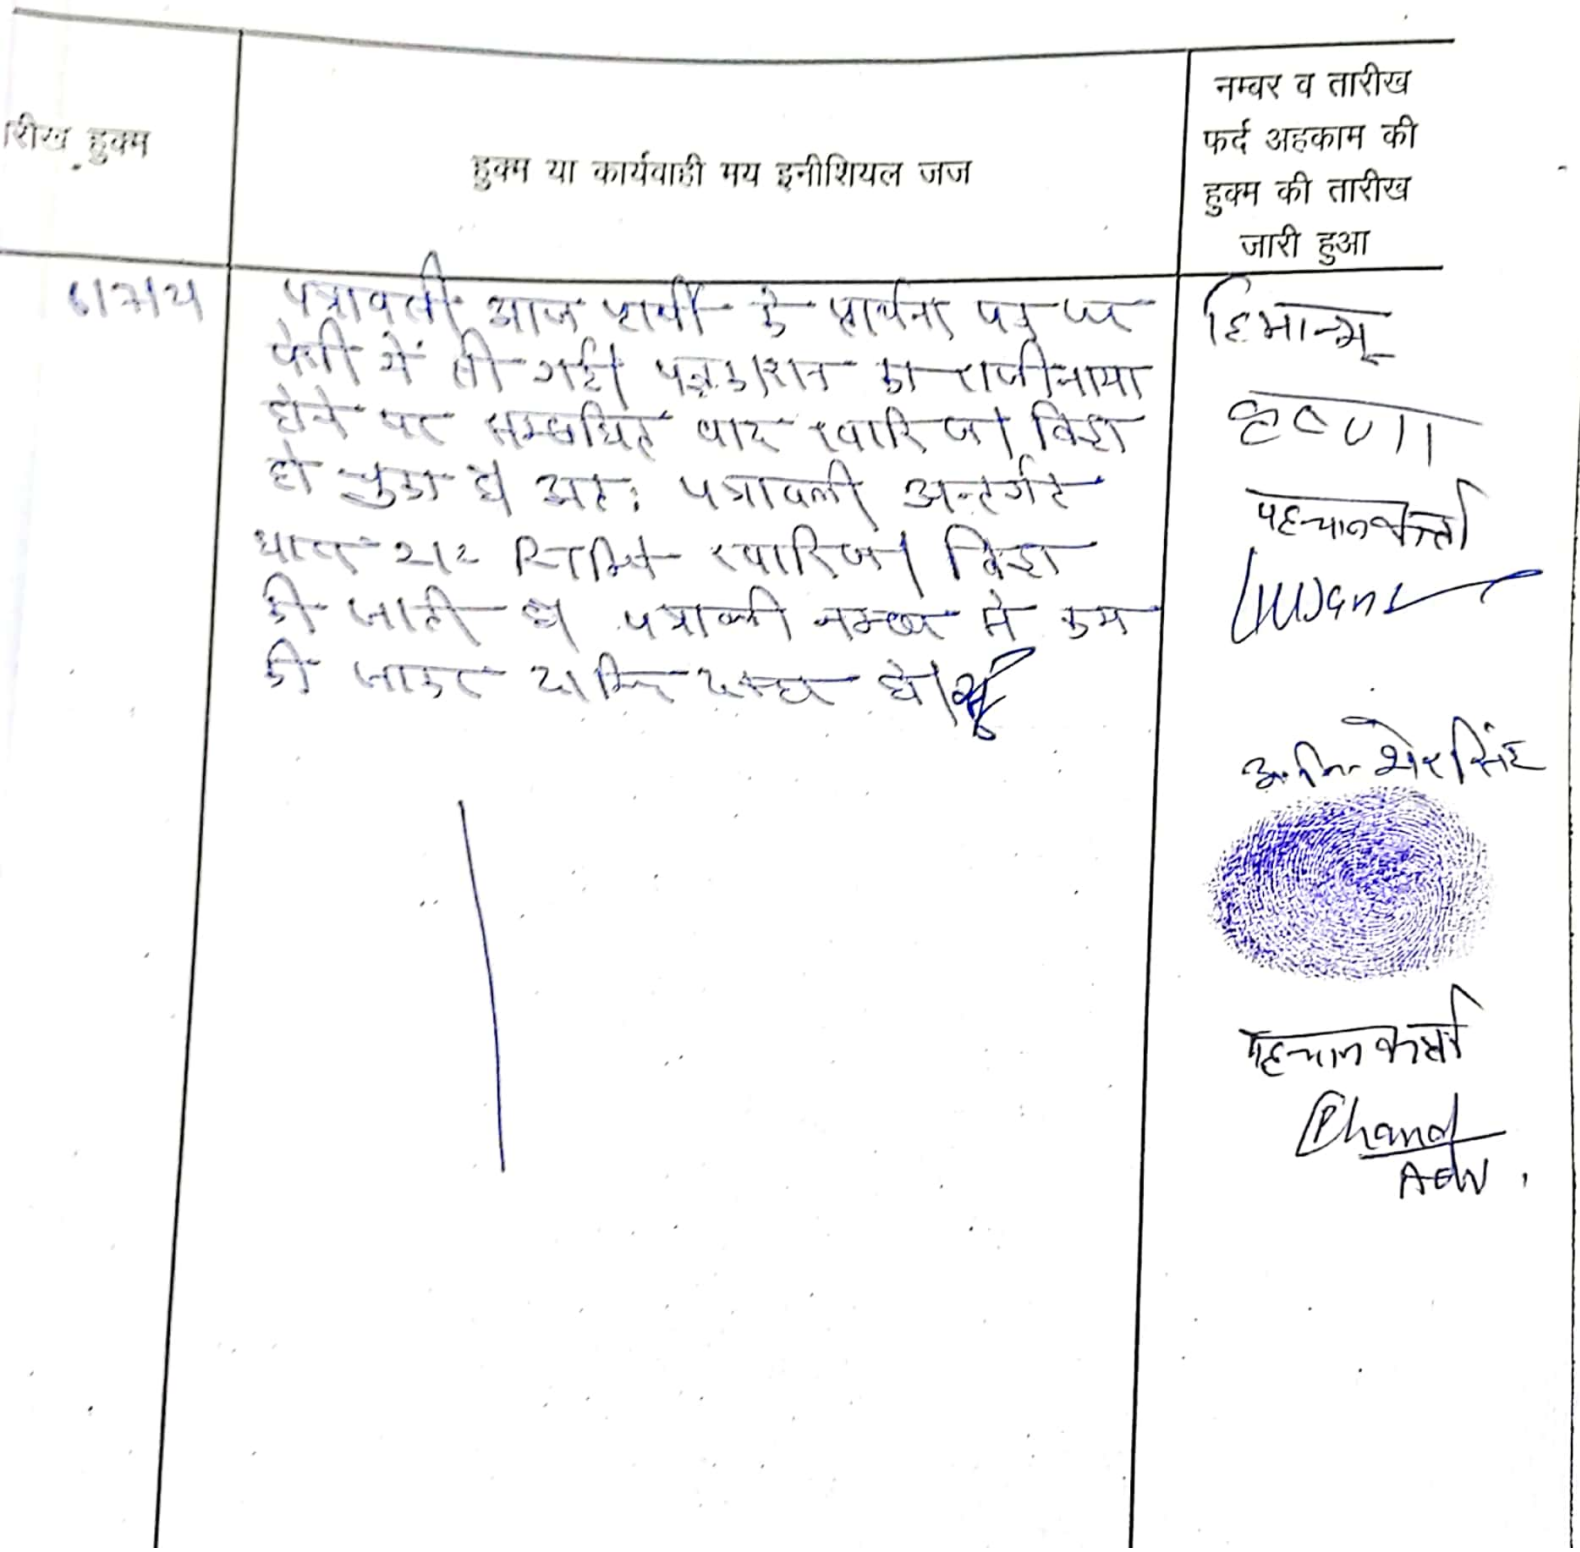 रीख हुक्म
हुक्म या कार्यवाही मय इनीशियल जज
नम्बर व तारीख
फर्द अहकाम की
हुक्म की तारीख
जारी हुआ
पत्रावली आज प्रार्थी के प्रार्थना पत्र पर
पेशी में ली गई। पक्षकारान का राजीनामा
होने पर सम्बंधित वाद खारिज किया
हो चुका है अतः पत्रावली अन्तर्गत
धारा 212 खारिज किया
की जाती है। पत्रावली नम्बर से कम
की जाकर दाखिल दफ्तर हो।
हिमान्शु
कृष्णा
पहचानकर्ता
अ.नि. शेरसिंह
पहचानकर्ता
Chand
Adv.